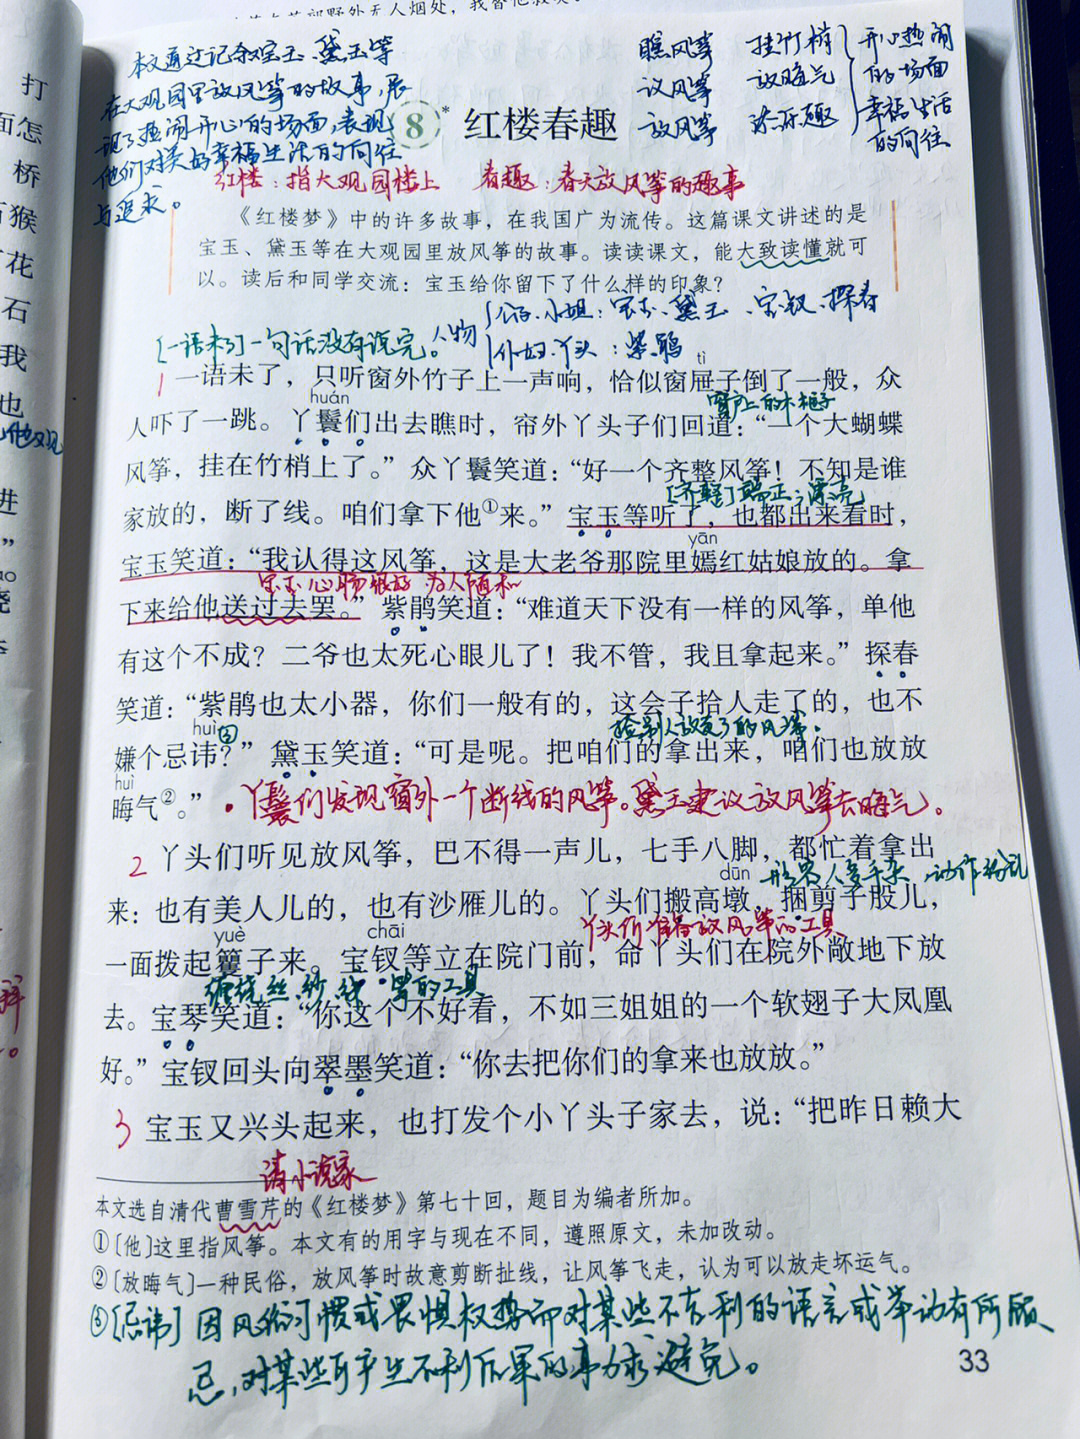 本文通过记叙宝玉、黛玉等
在大观园里放风筝的故事，展
现了热闹开心的场面，表现
他们对美好幸福生活的向往
与追求。
瞧风筝 挂竹梢
议风筝 放晦气
放风筝
开心热闹
的场面
幸福生活
的向往
8* 红楼春趣
红楼：指大观园楼上 春趣：春天放风筝的趣事
《红楼梦》中的许多故事，在我国广为流传。这篇课文讲述的是
宝玉、黛玉等在大观园里放风筝的故事。读读课文，能大致读懂就可
以。读后和同学交流：宝玉给你留下了什么样的印象？
人物
公子、小姐：宝玉、黛玉、宝钗、探春
仆妇、丫头：紫鹃
[一语未了]一句话没有说完。
tì
一语未了，只听窗外竹子上一声响，恰似窗屉子倒了一般，众
窗户上的木框子
huán
人吓了一跳。丫鬟们出去瞧时，帘外丫头子们回道：“一个大蝴蝶
风筝，挂在竹梢上了。”众丫鬟笑道：“好一个齐整风筝！不知是谁
[齐整]端正；漂亮
家放的，断了线。咱们拿下他①来。”宝玉等听了，也都出来看时，
yān
宝玉笑道：“我认得这风筝，这是大老爷那院里嫣红姑娘放的。拿
宝玉心肠很好 为人随和
下来给他送过去罢。”紫鹃笑道：“难道天下没有一样的风筝，单他
有这个不成？二爷也太死心眼儿了！我不管，我且拿起来。”探春
笑道：“紫鹃也太小器，你们一般有的，这会子拾人走了的，也不
捡别人放走了的风筝。
huì ③
嫌个忌讳？”黛玉笑道：“可是呢。把咱们的拿出来，咱们也放放
huì
晦气②。”
丫鬟们发现窗外一个断线的风筝。黛玉建议放风筝去晦气。
2 丫头们听见放风筝，巴不得一声儿，七手八脚，都忙着拿出
形容人多手杂，动作纷乱
dūn
来：也有美人儿的，也有沙雁儿的。丫头们搬高墩，捆剪子股儿，
丫头们准备放风筝的工具
yuè chāi
一面拨起籰子来。宝钗等立在院门前，命丫头们在院外敞地下放
缠绕丝、纱、线等的工具
去。宝琴笑道：“你这个不好看，不如三姐姐的一个软翅子大凤凰
好。”宝钗回头向翠墨笑道：“你去把你们的拿来也放放。”
3 宝玉又兴头起来，也打发个小丫头子家去，说：“把昨日赖大
清小说家
本文选自清代曹雪芹的《红楼梦》第七十回，题目为编者所加。
①[他]这里指风筝。本文有的用字与现在不同，遵照原文，未加改动。
②[放晦气]一种民俗，放风筝时故意剪断扯线，让风筝飞走，认为可以放走坏运气。
③[忌讳]因风俗习惯或畏惧权势而对某些不吉利的语言或举动有所顾
忌，对某些可产生不利后果的事力求避免。
33
打
面怎
桥
猴
花
石
我
也
进